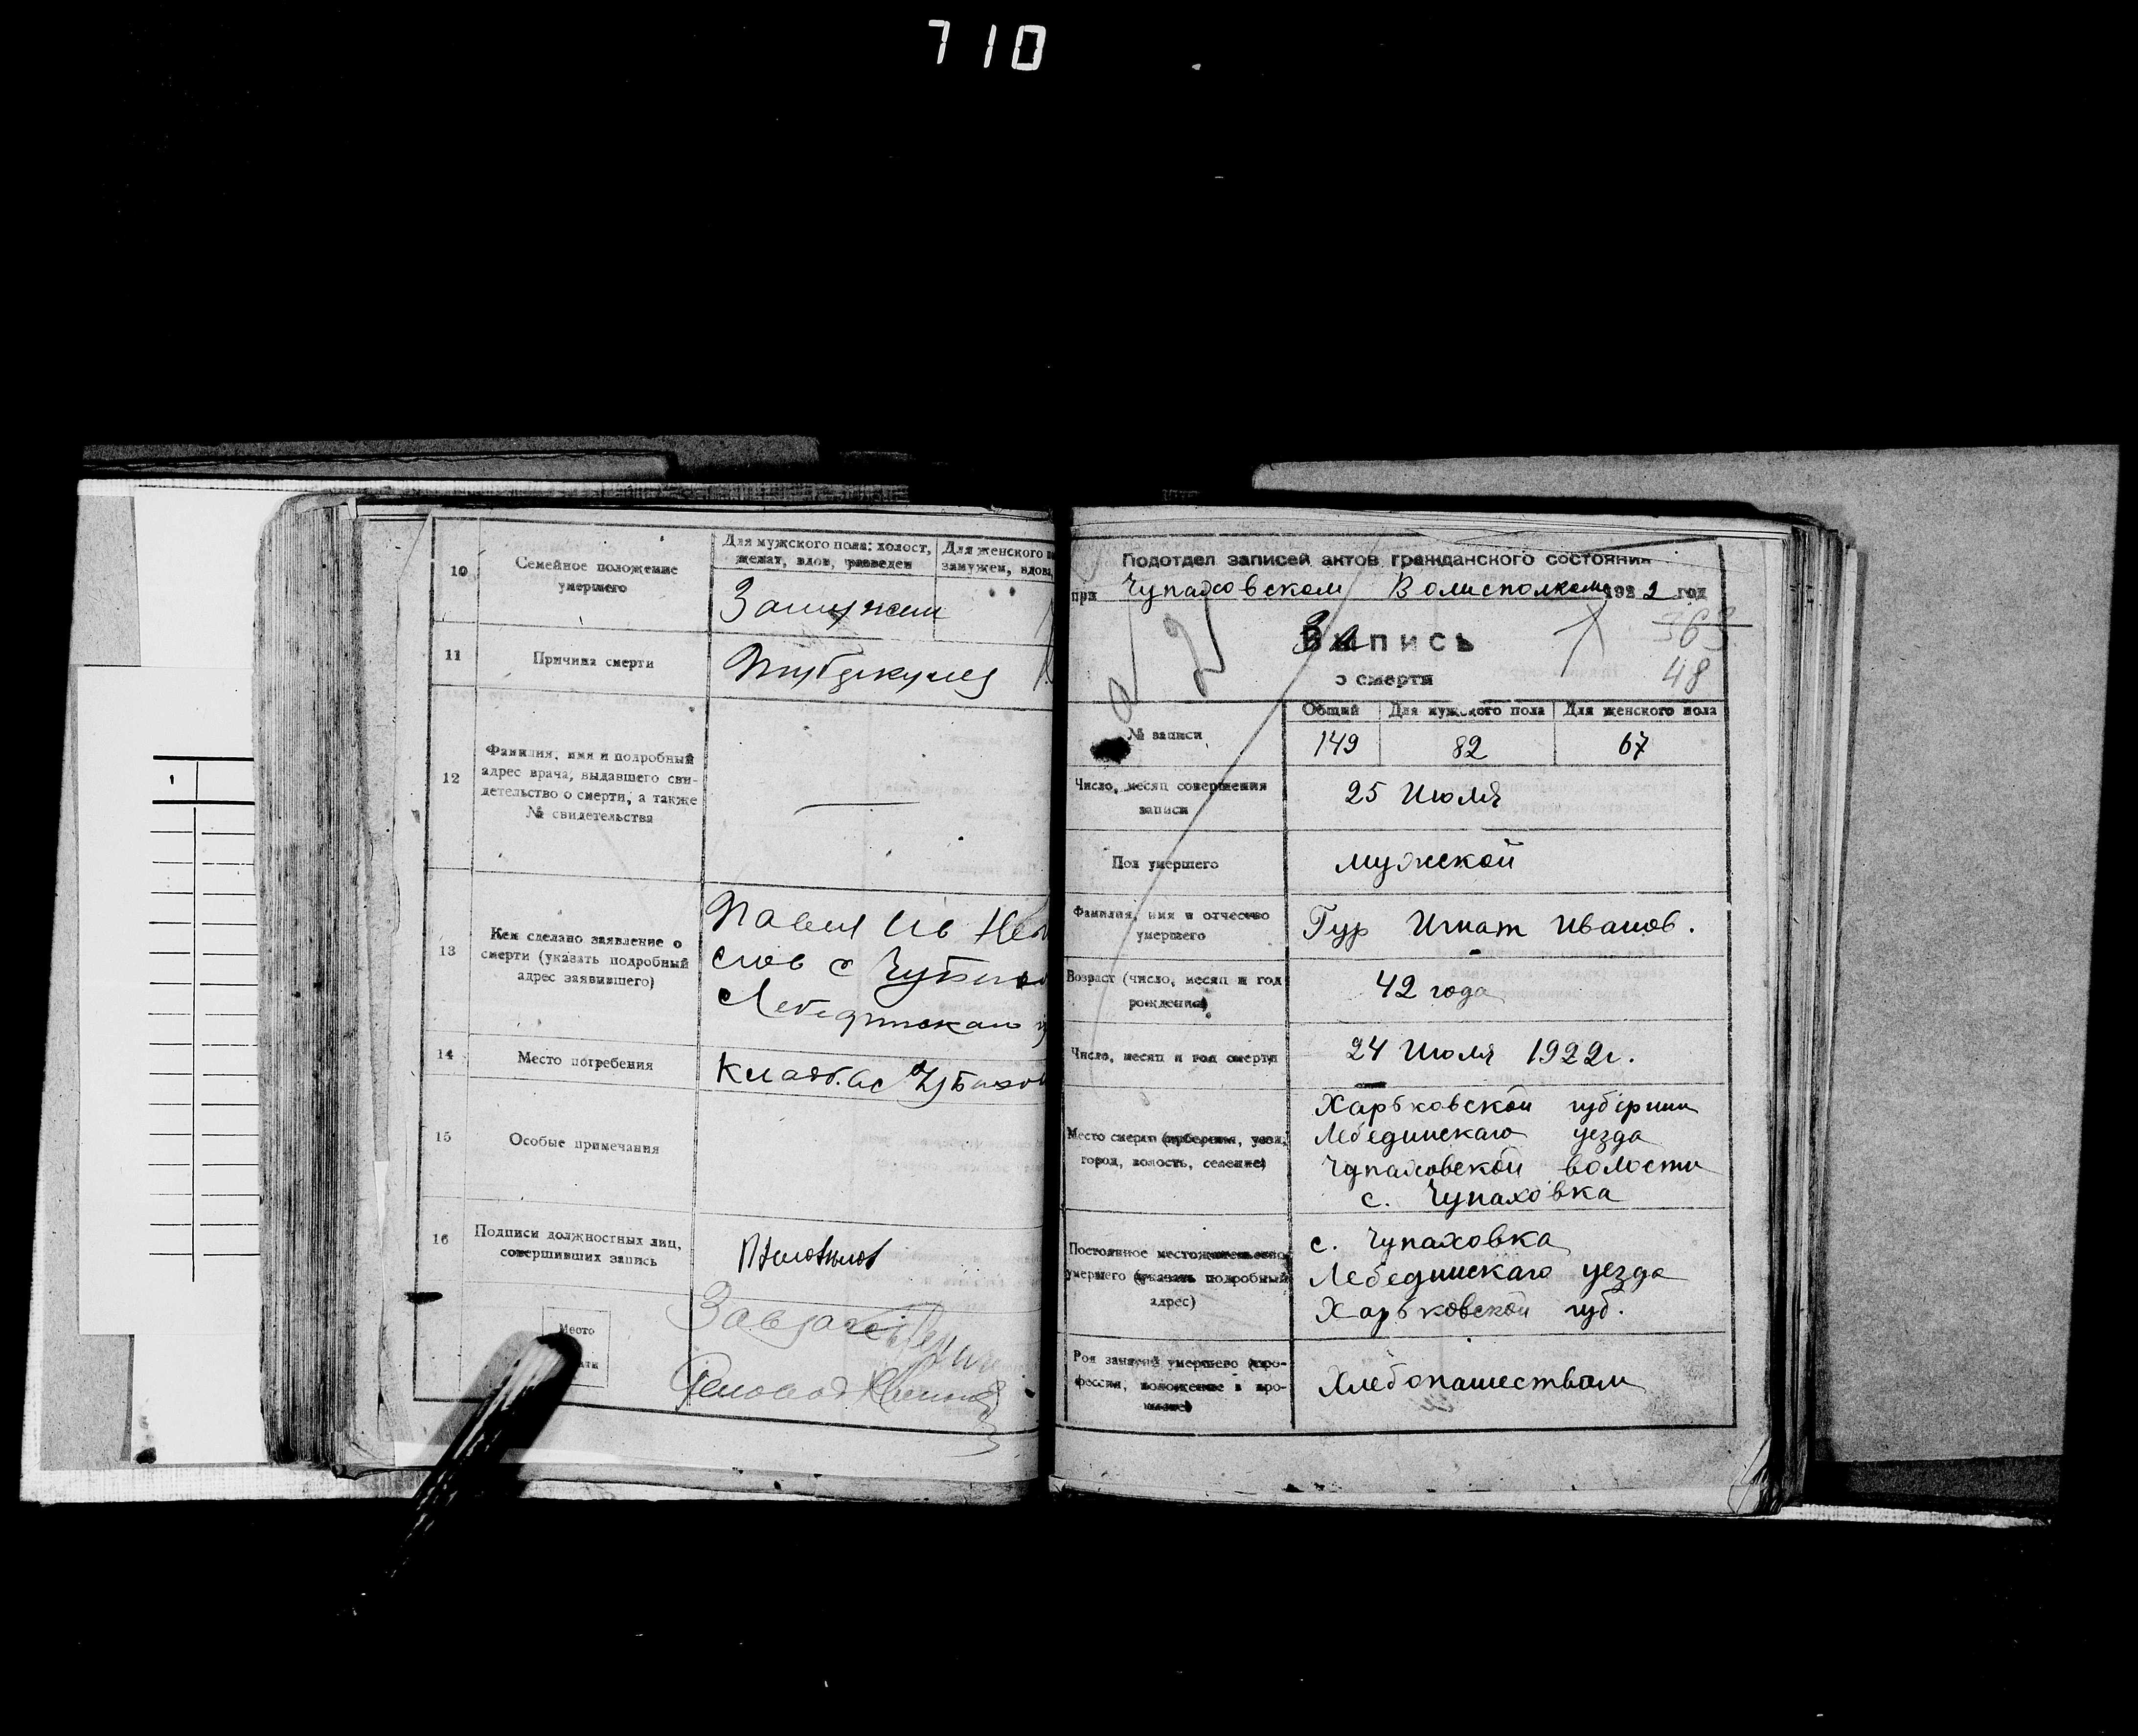 710
10
Семейное положение
умершего
Для мужского пола: холост,
женат, вдов, разведен
Для женского
замужем, вдова,
Замужем
11
Причина смерти
12
Фамилия, имя и подробный
адрес врача, выдавшего сви-
детельство о смерти, а также
№ свидетельства
—
13
Кем сделано заявление о
смерти (указать подробный
адрес заявившего)
Павел Ив
с
14
Место погребения
15
Особые примечания
16
Подписи должностных лиц,
совершивших запись
Место
Подотдел записей актов гражданского состояния
при Чупаховском Волисполкоме 1922 год
363
Запись
48
о смерти
№ записи
Общий
Для мужского пола
Для женского пола
149
82
67
Число, месяц совершения
записи
25 Июля
Пол умершего
мужской
Фамилия, имя и отчество
умершего
Гур Игнат Иванов.
Возраст (число, месяц и год
рождения)
42 года
Число, месяц и год смерти
24 Июля 1922г.
Место смерти (губерния, уезд,
город, волость, селение)
Харьковской губернии
Лебединскаго уезда
Чупаховской волости
с. Чупаховка
Постоянное местожительство
умершего (указать подробный
адрес)
с. Чупаховка
Лебединскаго уезда
Харьковской губ.
Род занятий умершего (про-
фессия, положение в про-
мысле)
Хлебопашеством